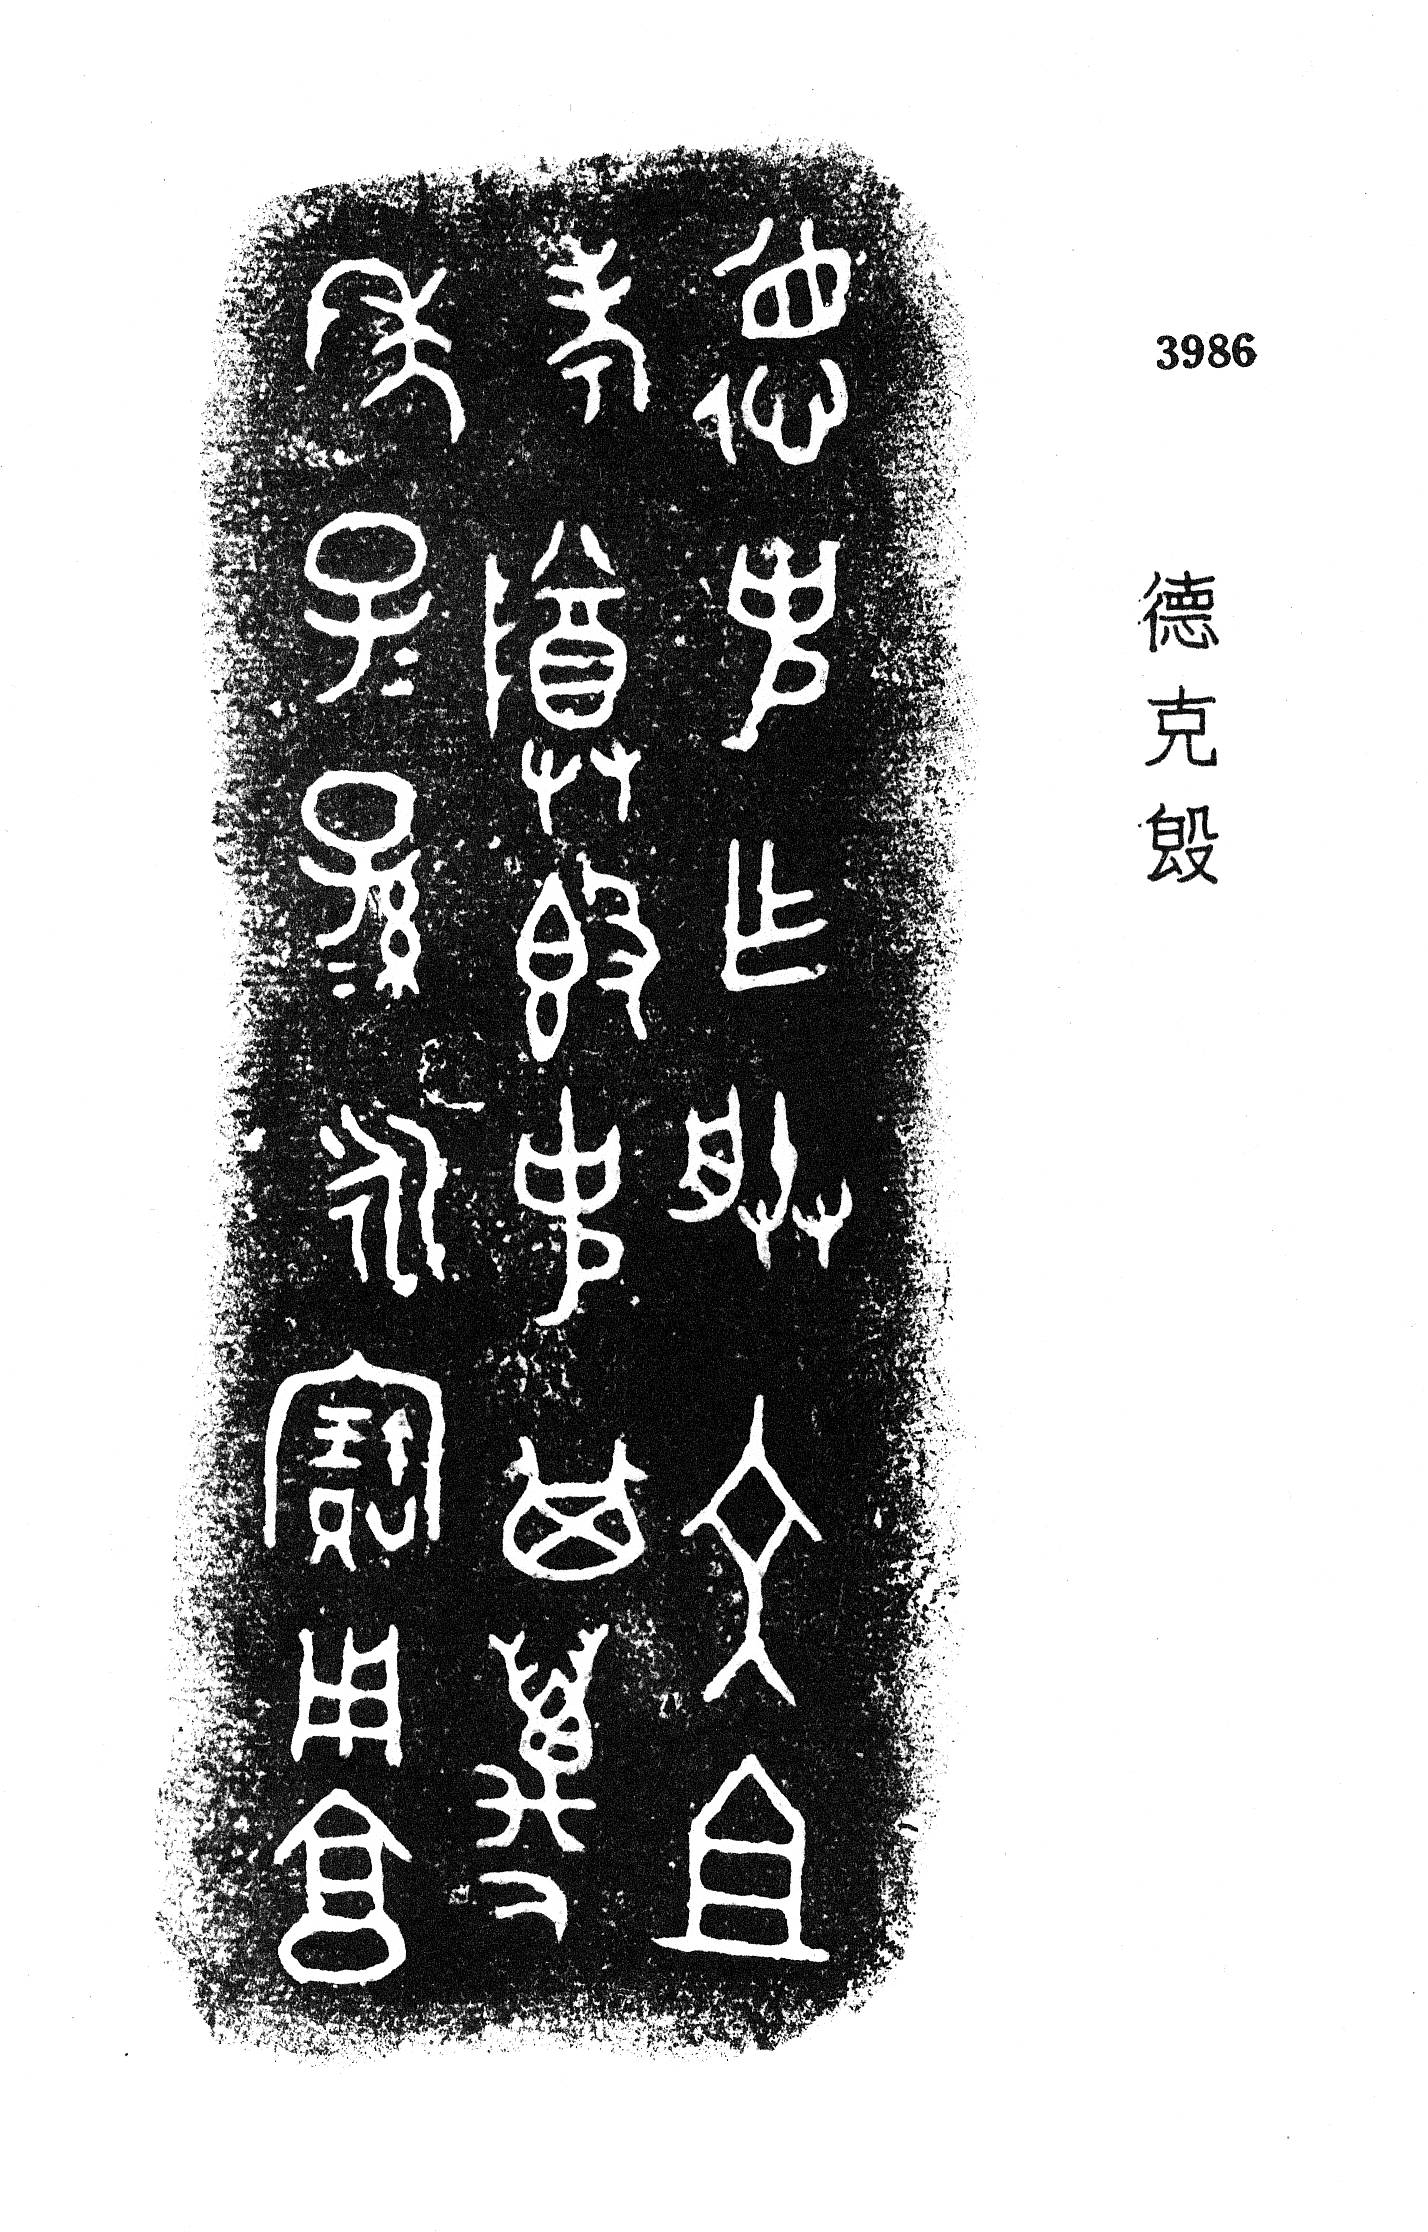 3986
德克𣪘
德克乍朕文且
考尊𣪘克其萬
年子=孫=永寶用享